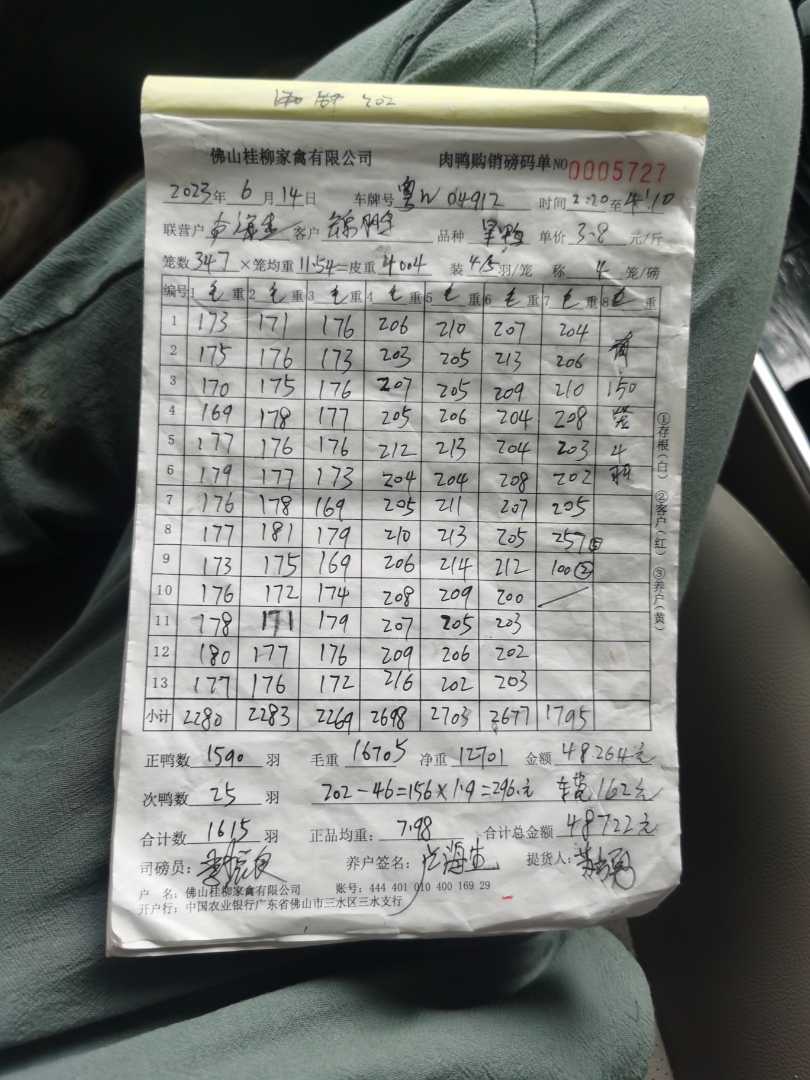 佛山桂柳家禽有限公司 肉鸭购销磅码单 NO 0005727
2023年 6 月 14 日 车牌号 粤W 04912 时间 2:20 至 4:10
联营户 客户 锦鹏 品种 单价 3.8 元/斤
笼数 347 × 笼均重 11.54 = 皮重 4004 装 4/5 羽/笼 称 4 笼/磅
编号 1 毛 重 2 毛 重 3 毛 重 4 毛 重 5 毛 重 6 毛 重 7 毛 重 8 毛 重
1 173 171 176 206 210 207 204
2 175 176 173 203 205 213 206 前
3 170 175 176 207 205 209 210 150
4 169 178 177 205 206 204 208 笼
5 177 176 176 212 213 204 203 4
6 179 177 173 204 204 208 202 羽
7 176 178 169 205 211 207 205
8 177 181 179 210 213 205 257⑤
9 173 175 169 206 214 212 100②
10 176 172 174 208 209 200
11 178 171 179 207 205 203
12 180 177 176 209 206 202
13 177 176 172 216 202 203
小计 2280 2283 2269 2698 2703 2677 1795
正鸭数 1590 羽 毛重 16705 净重 12701 金额 48264元
次鸭数 25 羽 202-46=156×1.9=296元 162元
合计数 1615 羽 正品均重: 7.98 合计总金额 48722元
司磅员: 养户签名: 卢海生 提货人:
户 名: 佛山桂柳家禽有限公司 账号: 444 401 010 400 169 29
开户行: 中国农业银行广东省佛山市三水区三水支行
①存根(白) ②客户(红) ③养户(黄)